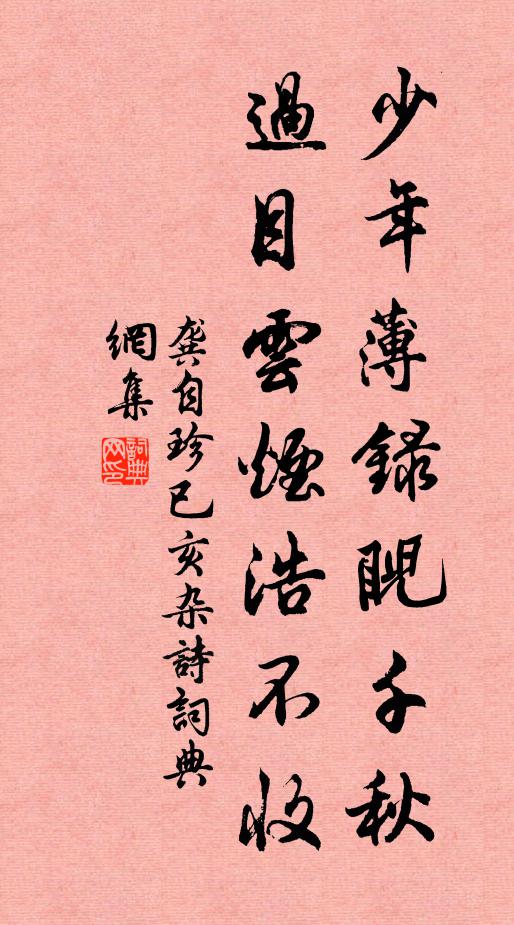 少年薄錄睨千秋
過目雲煙浩不收
龔自珍己亥杂詩詞典
網集
詞典網印